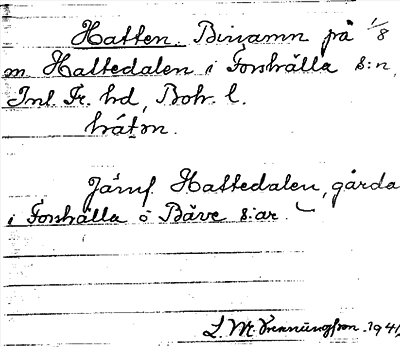 Hatten. Binamn på 1/8
m Hattedalen i Forshälla s:n,
Inl. Fr. hd, Boh. l.
hátən.
Jämf. Hattedalen, gårda
i Forshälla o Bäve s:ar.
L. M. 1941